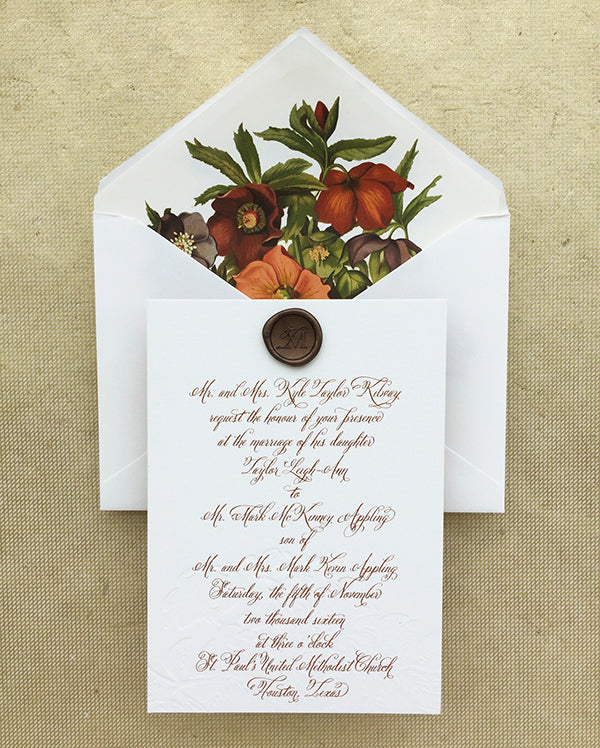 M
Mr. and Mrs. Kyle Taylor Kilway,
request the honour of your presence
at the marriage of his daughter
Taylor Leigh-Ann
to
Mr. Mark McKinney Appling
son of
Mr. and Mrs. Mark Kevin Appling
Saturday, the fifth of November
two thousand sixteen
at three o'clock
St. Paul's United Methodist Church
Houston, Texas